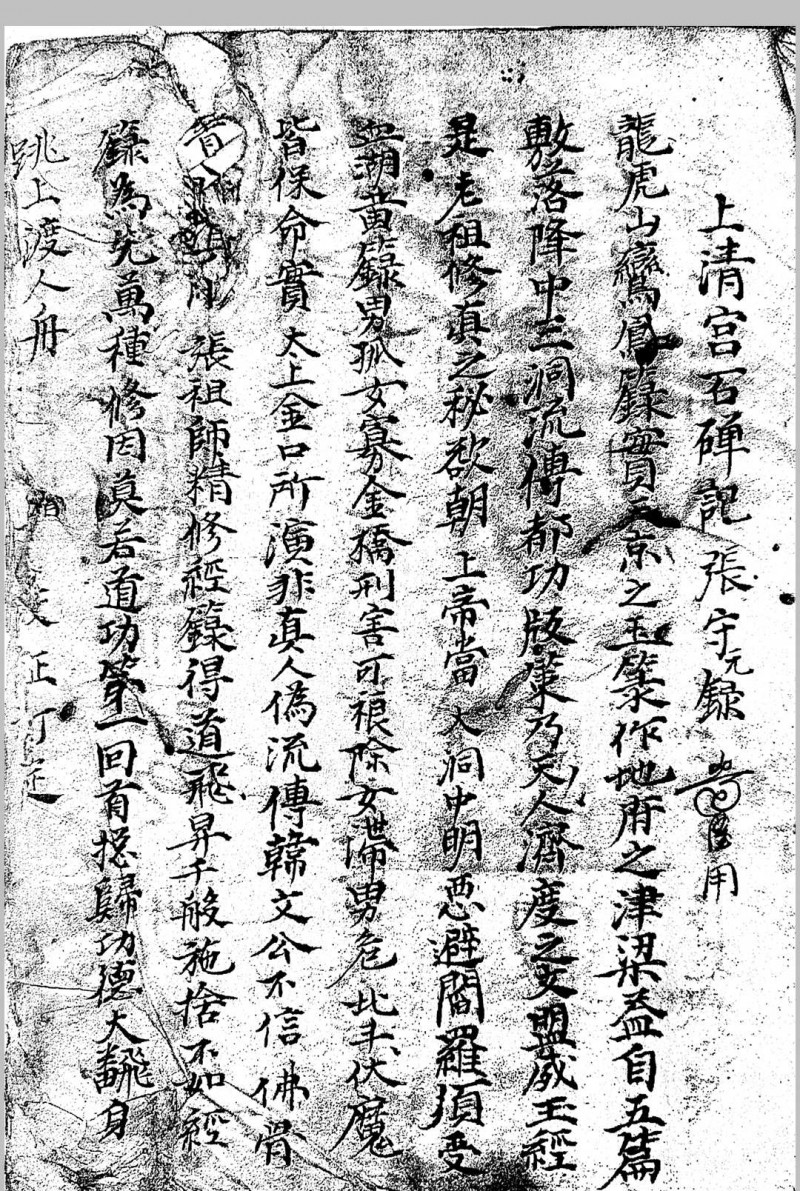 上清宮石碑記 張守元録 用
龍虎山鸞鳳籙實天京之玉篆作地府之津梁益自五篇
敷落降中三洞流傳都功版篆乃天人濟度之文盟威玉經
是老祖修真之秘欲朝 上帝當 大洞中明惡避閻羅須受
血湖黃籙男孤女寡金橋刑害可禳除女滯男危北斗伏魔
皆保命實 太上金口所演非真人偽流傳韓文公不信 佛骨
張祖師精修經籙得道飛昇千般施捨不如經
籙為先萬種修因莫若道功第一回首揔歸功德大翻身
跳上渡人舟